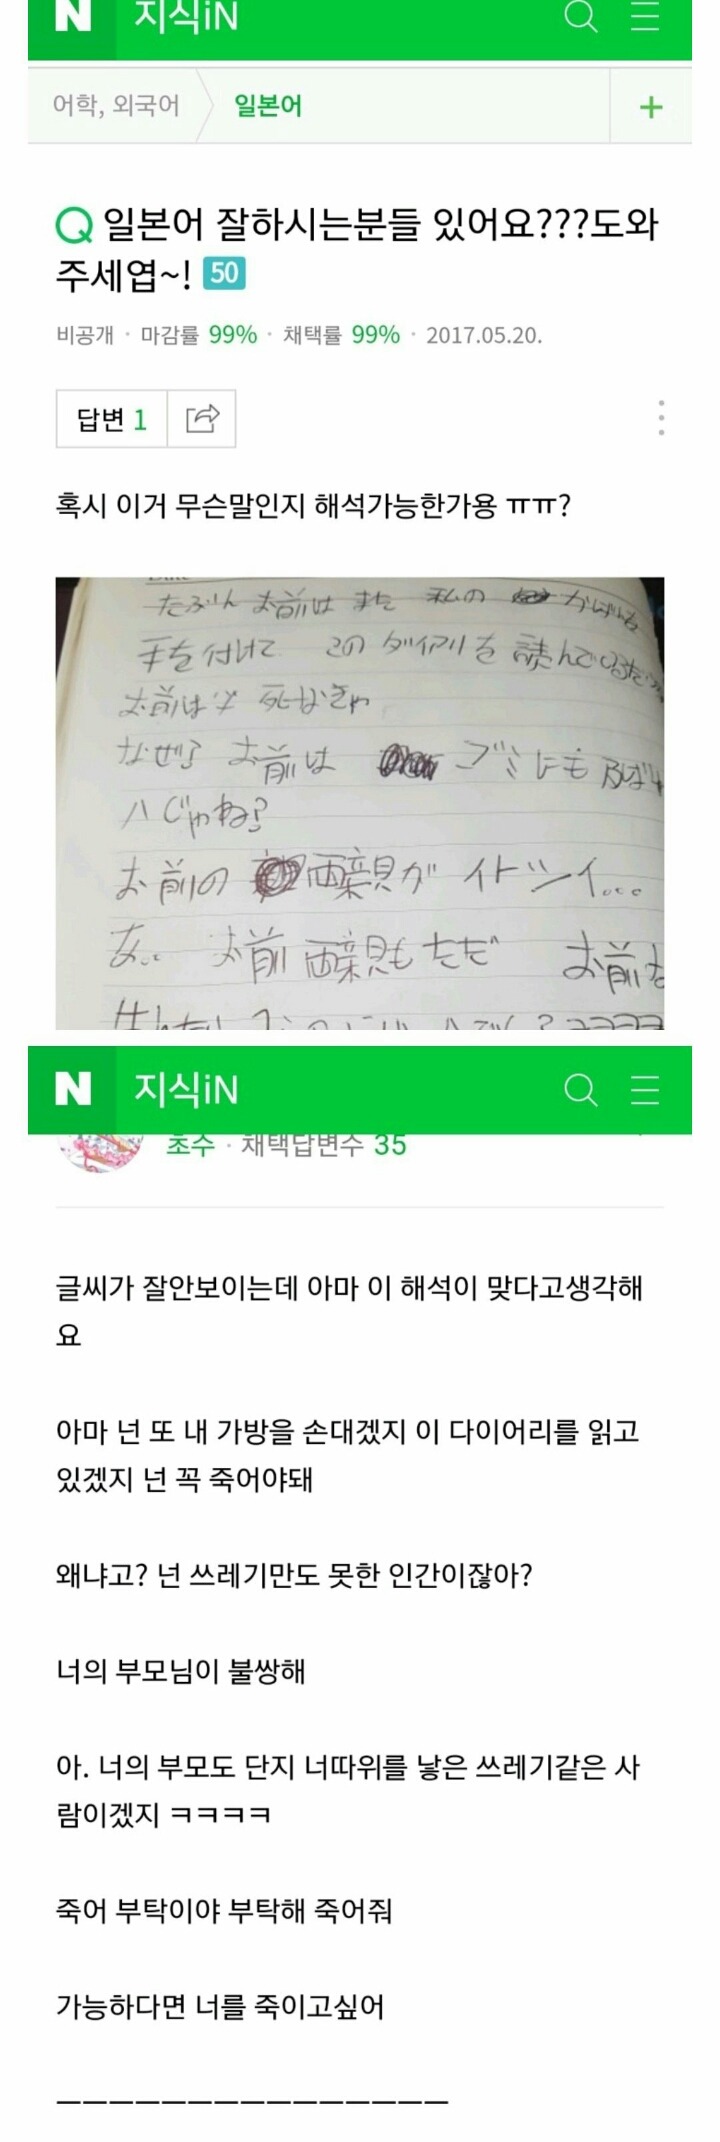 N 지식iN
어학, 외국어 일본어 +
Q 일본어 잘하시는분들 있어요???도와
주세엽~! 50
비공개 · 마감률 99% · 채택률 99% · 2017.05.20.
답변 1
혹시 이거 무슨말인지 해석가능한가용 ㅠㅠ?
たぶん お前は また 私の かばんも
手を付けて このダイアリを 読んでいるだ
お前は 死なきゃ
なぜ? お前は ゴミにも 及ばん
ハじゃね?
お前の 両親が イトツイ...
あ.. お前 両親もただ お前
N 지식iN
초수 · 채택답변수 35
글씨가 잘안보이는데 아마 이 해석이 맞다고생각해
요
아마 넌 또 내 가방을 손대겠지 이 다이어리를 읽고
있겠지 넌 꼭 죽어야돼
왜냐고? 넌 쓰레기만도 못한 인간이잖아?
너의 부모님이 불쌍해
아. 너의 부모도 단지 너따위를 낳은 쓰레기같은 사
람이겠지 ㅋㅋㅋㅋ
죽어 부탁이야 부탁해 죽어줘
가능하다면 너를 죽이고싶어